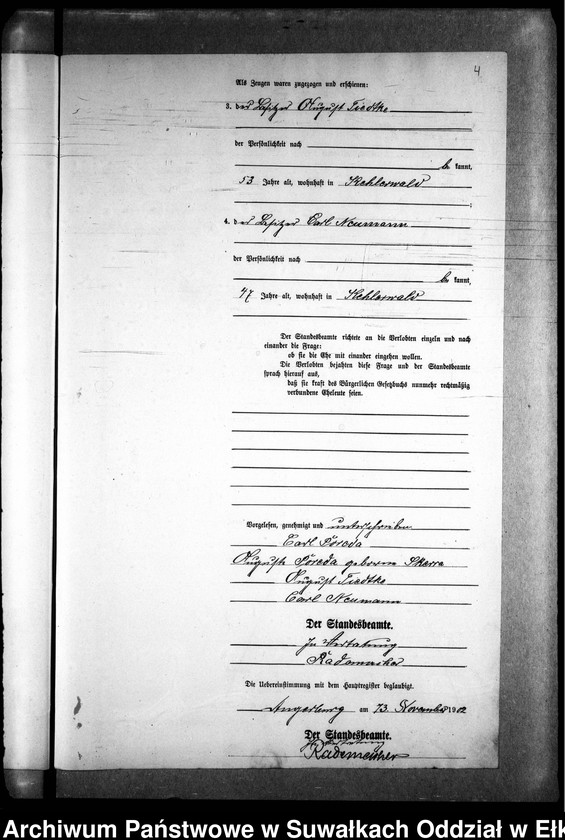 4
Als Zeugen waren zugezogen und erschienen:
3. der Besitzer August Tiedtke
der Persönlichkeit nach
be kannt,
53 Jahre alt, wohnhaft in Kehlerwald
;
4. der Besitzer Carl Neumann
der Persönlichkeit nach
be kannt,
47 Jahre alt, wohnhaft in Kehlerwald
Der Standesbeamte richtete an die Verlobten einzeln und nach
einander die Frage:
ob sie die Ehe mit einander eingehen wollen.
Die Verlobten bejahten diese Frage und der Standesbeamte
sprach hierauf aus,
daß sie kraft des Bürgerlichen Gesetzbuchs nunmehr rechtmäßig
verbundene Eheleute seien.
Vorgelesen, genehmigt und unterschrieben
Carl Soreda
Auguste Soreda geborene Skerra
August Tiedtke
Carl Neumann
Der Standesbeamte.
In Vertretung
Rademacher
Die Uebereinstimmung mit dem Hauptregister beglaubigt.
Angerburg am 13. November 1902
Der Standesbeamte.
In Vertretung
Rademacher
Archiwum Państwowe w Suwałkach Oddział w Eł